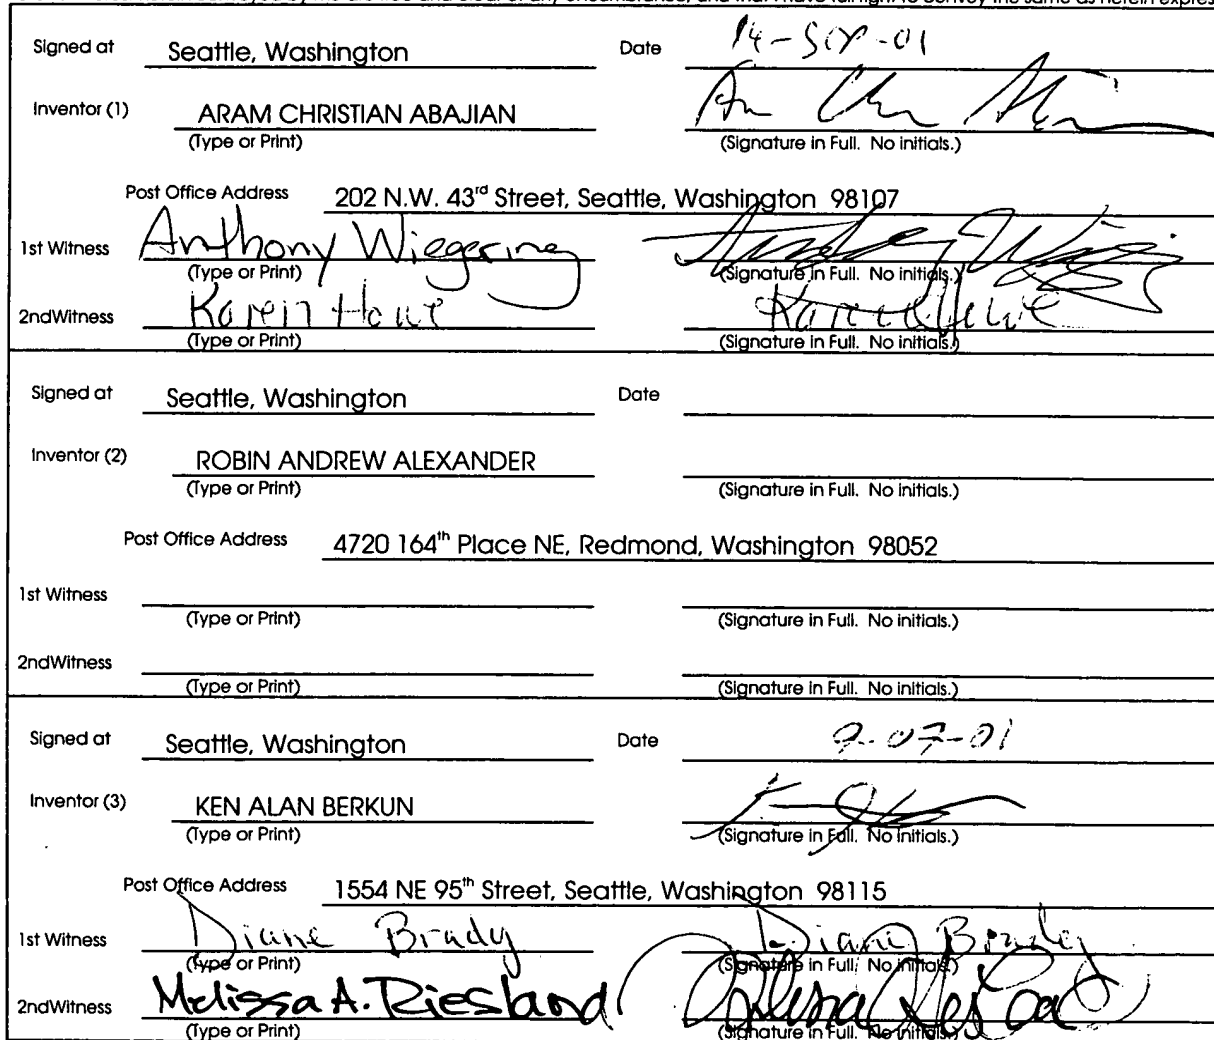 Signed at Seattle, Washington Date 14-SEP-01
Inventor (1) ARAM CHRISTIAN ABAJIAN
(Type or Print) (Signature in Full. No initials.)
Post Office Address 202 N.W. 43rd Street, Seattle, Washington 98107
1st Witness Anthony Wiegering
(Type or Print) (Signature in Full. No initials.)
2ndWitness Karen Howe Karen Howe
(Type or Print) (Signature in Full. No initials.)
Signed at Seattle, Washington Date
Inventor (2) ROBIN ANDREW ALEXANDER
(Type or Print) (Signature in Full. No initials.)
Post Office Address 4720 164th Place NE, Redmond, Washington 98052
1st Witness
(Type or Print) (Signature in Full. No initials.)
2ndWitness
(Type or Print) (Signature in Full. No initials.)
Signed at Seattle, Washington Date 9-07-01
Inventor (3) KEN ALAN BERKUN
(Type or Print) (Signature in Full. No initials.)
Post Office Address 1554 NE 95th Street, Seattle, Washington 98115
1st Witness Diane Brady Diane Brady
(Type or Print) (Signature in Full. No initials.)
2ndWitness Melissa A. Riesland
(Type or Print) (Signature in Full. No initials.)